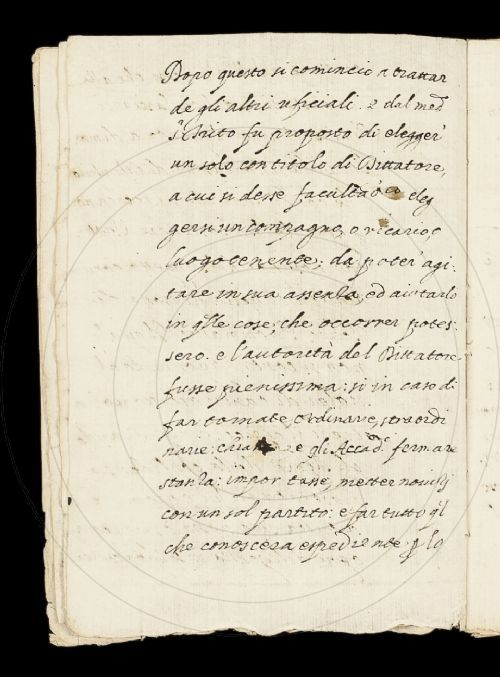 Dopo questo si cominciò a trattar
de gli altri uficiali. e dal med.
s.r Scito fu proposto di elegger
un solo con titolo di Dittatore,
a cui si desse facultà di eleg
gersi un compagno, o vicario, o
luogotenente; da poter agi-
tare in sua assenza, ed aiutarlo
in q.lle cose, che occorrer potes-
sero. e l'autorità del Dittatore
fusse pienissima: sì in caso di
far tornate ordinarie, straordi
narie: gli Accad.i fermare
stanza: impor tasse, metter novi
con un sol partito: e far tutto q.l
che conoscerà espediente p lo